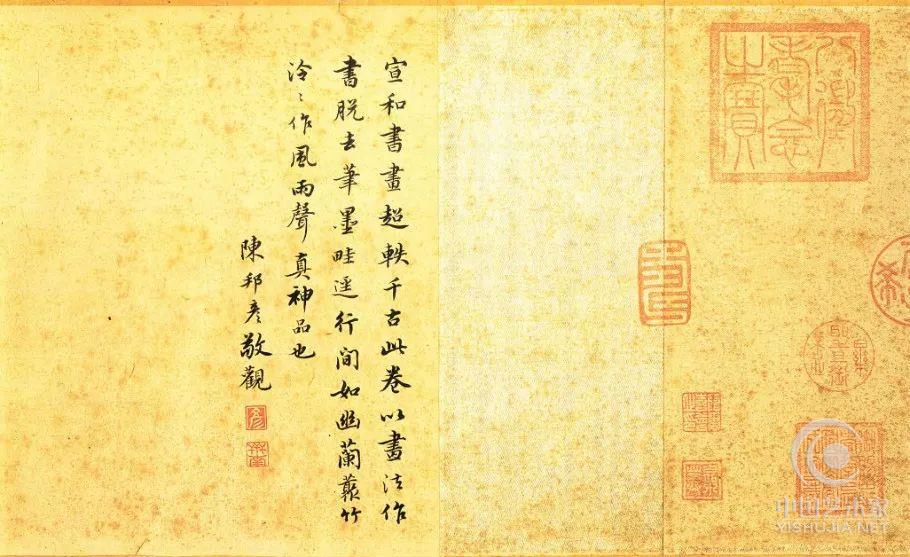 宣和書畫超軼千古此卷以畫法作
書脫去筆墨畦逕行間如幽蘭叢竹
泠〻作風雨聲真神品也
陳邦彥敬觀
八徵耄念之寶
壽
中国艺术家
YISHUJIA.NET